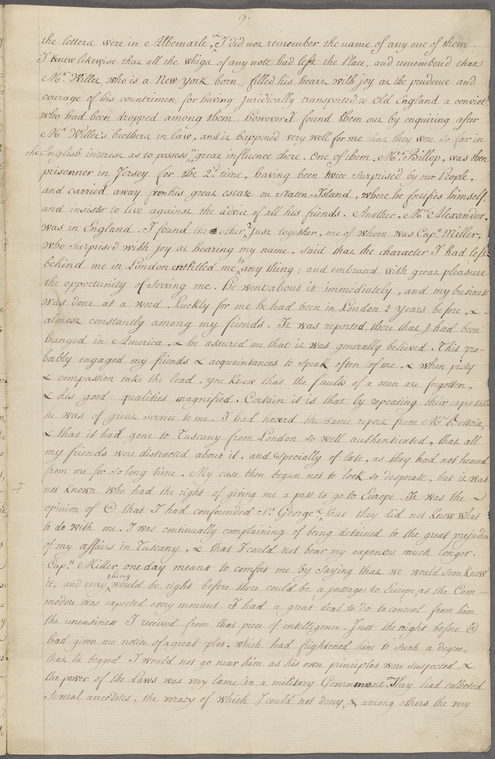 9.
the letters were in Albemarle, I did not remember the name of any one of them.
I knew likewise that all the whigs of any note had left the Place, and remembered that
Mr. Willet who is a New-York born, filled his heart with joy at the prudence and
courage of his countrimen for having juridically transported to Old England a convict
who had been dropped among them. However I found them out by enquiring after
Mr. Willet's brothers in law, and it happened very well for me that they were so far in
the English interest as to possess great influence there. One of them, Mr. Billop, was then
prisonner in Jersey for the 2d. time, having been twice surprised by our People,
and carried away from his great estate on Staten-Island, where he fortifies himself
and insists to live against the advice of all his friends. Another, Mr. Alexander,
was in England. I found the other 2 just together, one of whom was Capn. Miller,
who surprised with joy at hearing my name, said that the character I had left
behind me in London entitled me to any thing; and embraced with great pleasure
the opportunity of serving me. He went about it immediately, and my business
was done at a word. Luckily for me he had been in London 2 Years before, &
almost constantly among my friends. It was reported there that I had been
hanged in America, & he assured me that it was generally believed. This pro-
bably engaged my friends & acquaintances to speak often of me. & when pity
& compassion take the lead, you know that the faults of a man are forgotten,
& his good qualities magnified. Certain it is that by repeating their
he was of great service to me. I had heard the same report from Mr. Bettoia,
& that it had gone to Tuscany from London so well authenticated, that all
my friends were distracted about it, and specially of late, as they had not heard
from me for so long time. My case then begun not to look so desperate, but it was
not known who had the right of giving me a pass to go to Europe. It was the
opinion of @ that I had confounded St. George, & that they did not know what
to do with me. I was continually complaining of being detained to the great prejudice
of my affairs in Tuscany, & that I could not bear my expences much longer.
Capn. Miller, one day meant to comfort me by saying that we would soon know
it, and every thing would be right before there could be a passage to Europe, as the Com-
modore was expected every moment. I had a great deal to do to conceal from him
the uneasiness I received from that piece of intelligence. Just the night before @
had given me notice of a great plot, which had frightened him to such a degree,
that he begged I would not go near him as his own principles were suspected, &
the power of the Laws was very lame in a military Government. They had collected
several anecdotes, the veracy of which I could not deny, & among others the very